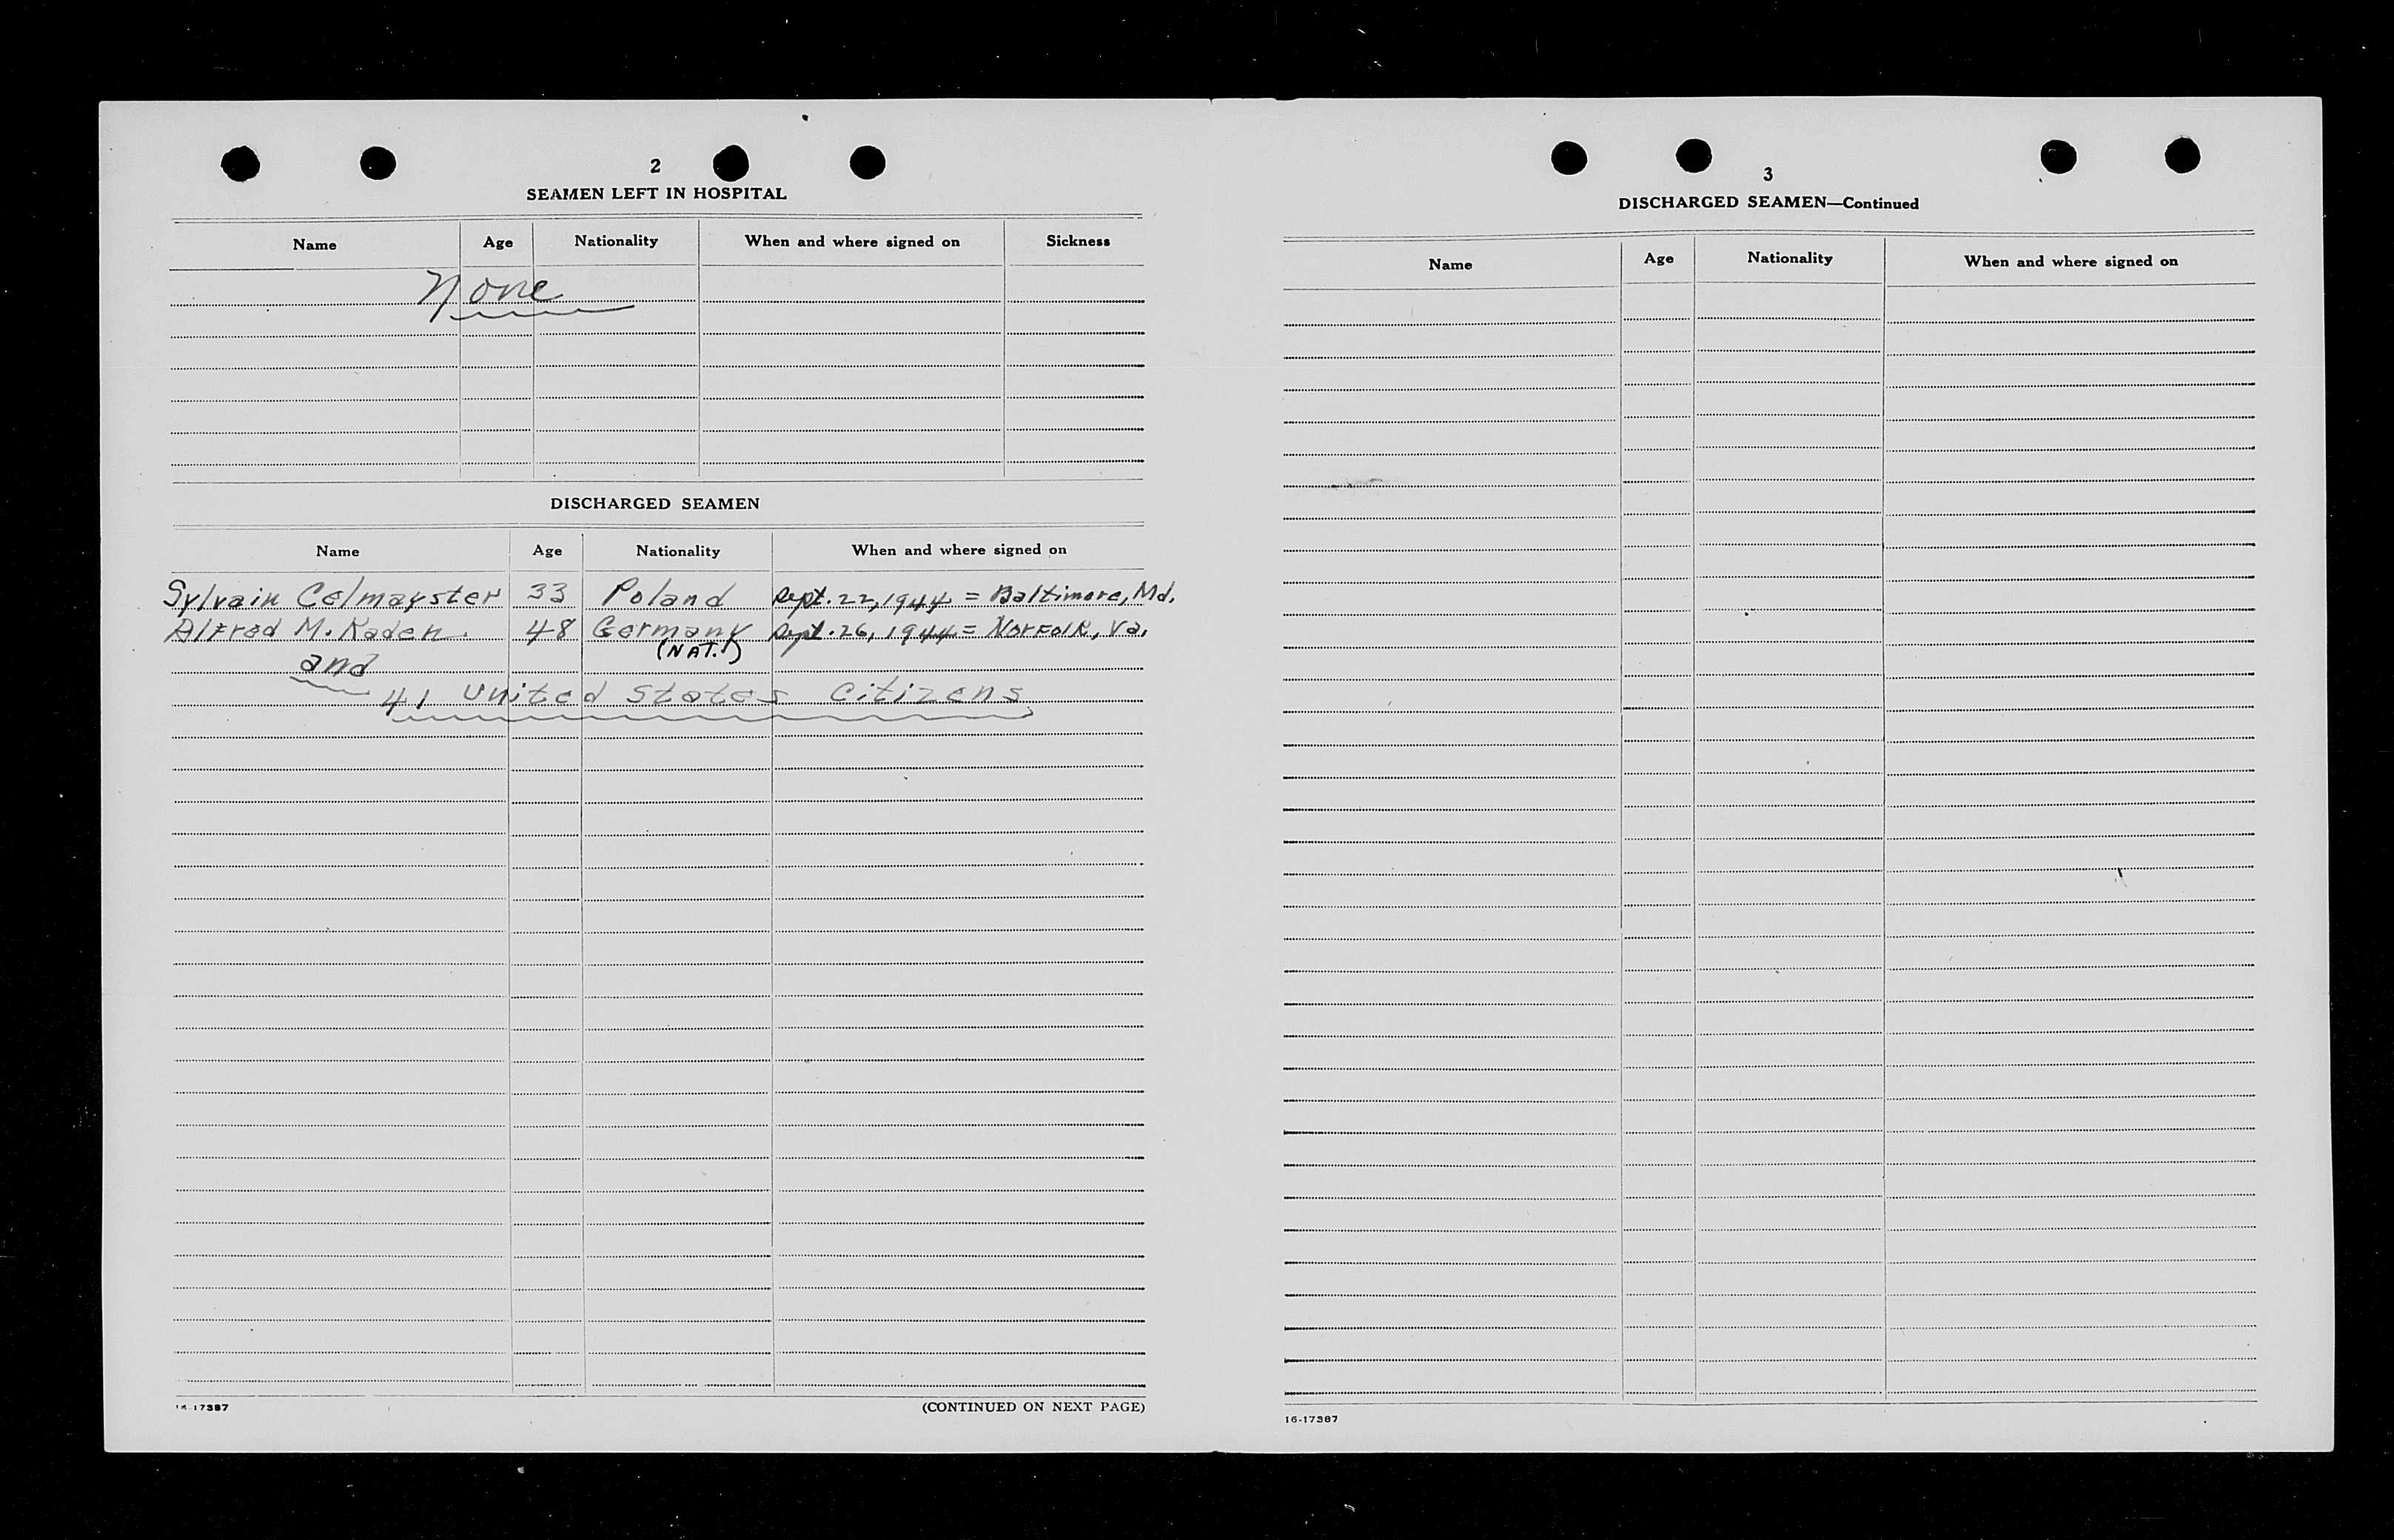 2
SEAMEN LEFT IN HOSPITAL
Name Age Nationality When and where signed on Sickness
None
DISCHARGED SEAMEN
Name Age Nationality When and where signed on
Sylvain Celmayster 33 Poland Sept. 22, 1944 = Baltimore, Md.
Alfred M. Kaden 48 Germany Sept. 26, 1944 = Norfolk, Va.
(NAT.)
and
41 United States Citizens
16-17387
(CONTINUED ON NEXT PAGE)
3
DISCHARGED SEAMEN—Continued
Name Age Nationality When and where signed on
16-17387